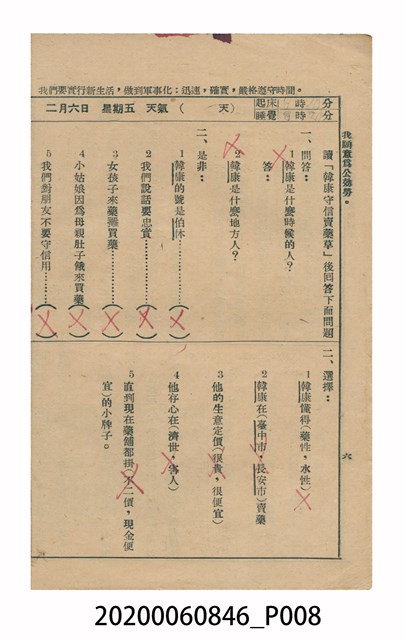 我們要實行新生活，做到軍事化：迅速，確實，嚴格遵守時間。
二月六日 星期五 天氣（　天）
起床 時 分
睡覺 時 分
我願意爲公効勞。
六
讀「韓康守信賣藥草」後回答下面問題
一、問答：
1 韓康是什麼時候的人？
答：
2 韓康是什麼地方人？
二、是非：
1 韓康的號是伯休……（ ）
2 我們說話要忠實……（ ）
3 女孩子來藥攤買藥……（ ）
4 小姑娘因爲母親肚子餓來買藥（ ）
5 我們對朋友不要守信用……（ ）
二、選擇：
1 韓康懂得（藥性，水性）
2 韓康在（臺中市，長安市）賣藥
3 他的生意定價（很貴，很便宜）
4 他存心在（濟世，害人）
5 直到現在藥舖都掛（不二價，現金便
宜）的小牌子。
20200060846_P008